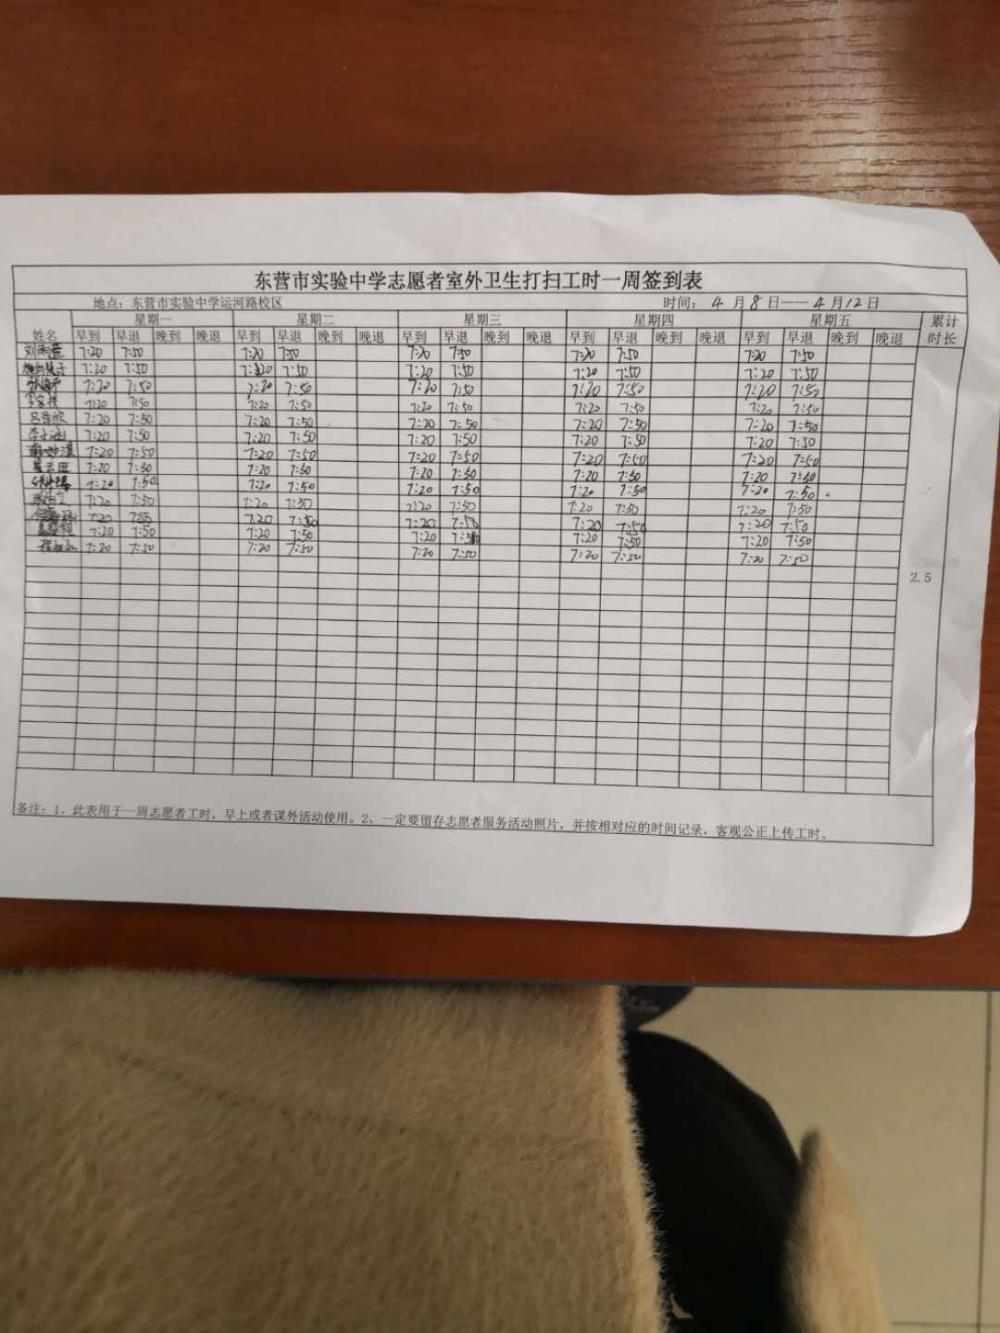 东营市实验中学志愿者室外卫生打扫工时一周签到表
地点：东营市实验中学运河路校区 时间：4月8日——4月12日
姓名 星期一 星期二 星期三 星期四 星期五 累计时长
早到 早退 晚到 晚退 早到 早退 晚到 晚退 早到 早退 晚到 晚退 早到 早退 晚到 晚退 早到 早退 晚到 晚退
7:20 7:50 7:20 7:50 7:20 7:50 7:20 7:50 7:20 7:50
7:20 7:50 7:50 7:20 7:50 7:20 7:50 7:20 7:50
7:20 7:50 7:20 7:50 7:20 7:50 7:20 7:50 7:20 7:50
7:20 7:50 7:20 7:50 7:20 7:50 7:20 7:50 7:20 7:50
7:20 7:50 7:20 7:50 7:20 7:50 7:20 7:50 7:20 7:50
李子涵 7:20 7:50 7:20 7:50 7:20 7:50 7:20 7:50 7:20 7:50
7:20 7:50 7:20 7:50 7:20 7:50 7:20 7:50 7:20 7:50
7:20 7:50 7:20 7:50 7:20 7:50 7:20 7:50 7:20 7:50
7:20 7:50 7:20 7:50 7:20 7:50 7:20 7:50 7:20 7:50
7:20 7:50 7:20 7:50 7:20 7:50 7:20 7:50 7:20 7:50
7:20 7:20 7:50 7:20 7:50 7:20 7:50 7:20 7:50
7:20 7:50 7:20 7:50 7:20 7:20 7:50 7:20 7:50
7:20 7:50 7:20 7:50 7:20 7:50 7:20 7:50 7:20 7:50
2.5
备注：1、此表用于一周志愿者工时，早上或者课外活动使用。2、一定要留存志愿者服务活动照片，并按相对应的时间记录，客观公正上传工时。